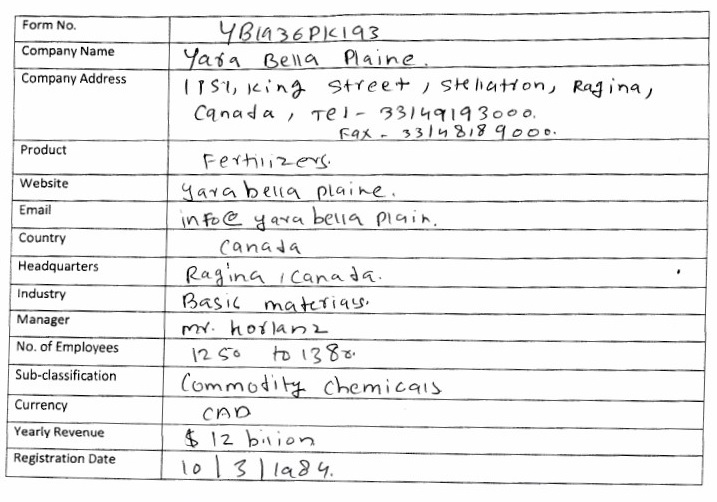 Form No. YB1936PK193
Company Name Yara Bella Plaine.
Company Address 1151, King Street, Stellation, Ragina,
Canada, Tel - 33149193000.
Fax - 33148189000.
Product Fertilizers.
Website yarabella plaine.
Email info@ yarabella plain.
Country Canada
Headquarters Ragina, Canada.
Industry Basic materials.
Manager mr. horlanz
No. of Employees 1250 to 1380.
Sub-classification Commodity chemicals
Currency CAD
Yearly Revenue $ 12 billion
Registration Date 10/3/1984.